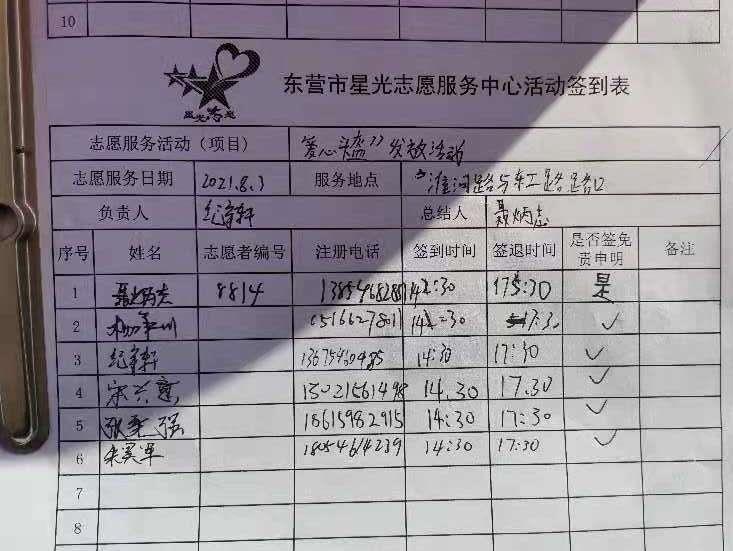 10
星光志愿
东营市星光志愿服务中心活动签到表
志愿服务活动（项目） 爱心头盔”发放活动
志愿服务日期 2021.8.3 服务地点 淮河路与东工路路口
负责人 纪宇轩 总结人 聂炳志
序号 姓名 志愿者编号 注册电话 签到时间 签退时间 是否签免责申明 备注
1 聂炳志 8814 14:30 17:30 是
2 14:30 17:30 ✓
3 纪宇轩 14:30 17:30 ✓
4 15021561498 14.30 17.30 ✓
5 18615982915 14:30 17:30 ✓
6 18054614239 14:30 17:30 ✓
7
8